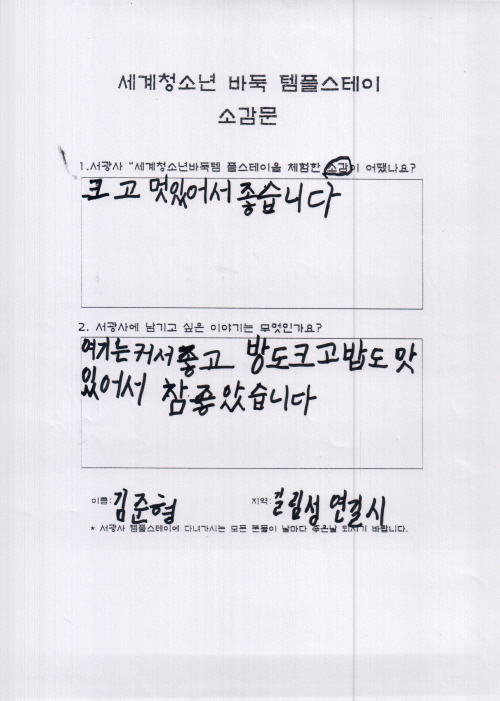 세계청소년 바둑 템플스테이
소감문
1.서광사 "세계청소년바둑템 플스테이을 체험한 소감이 어땠나요?
크고 멋있어서 좋습니다
2. 서광사에 남기고 싶은 이야기는 무엇인가요?
여기는 커서 좋고 방도크고밥도 맛
있어서 참좋았습니다
이름: 김준형 지역: 길림성 연길시
* 서광사 템플스테이에 다녀가시는 모든 분들이 날마다 좋은날 되시기 바랍니다.